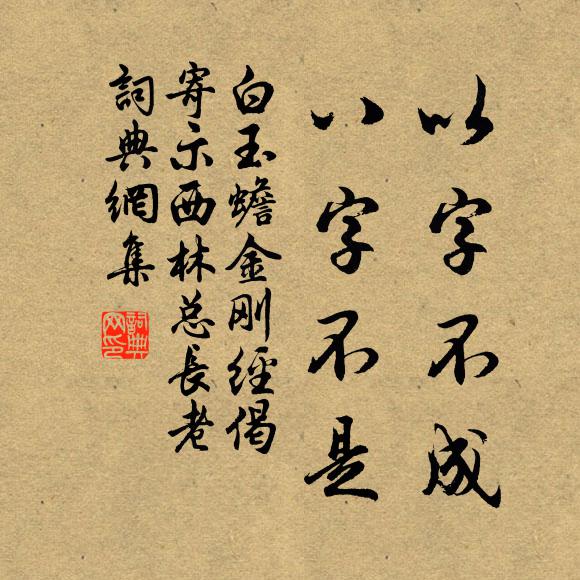 以字不成
八字不是
白玉蟾金刚經偈
寄示西林总長老
詞典網集
詞典
网印